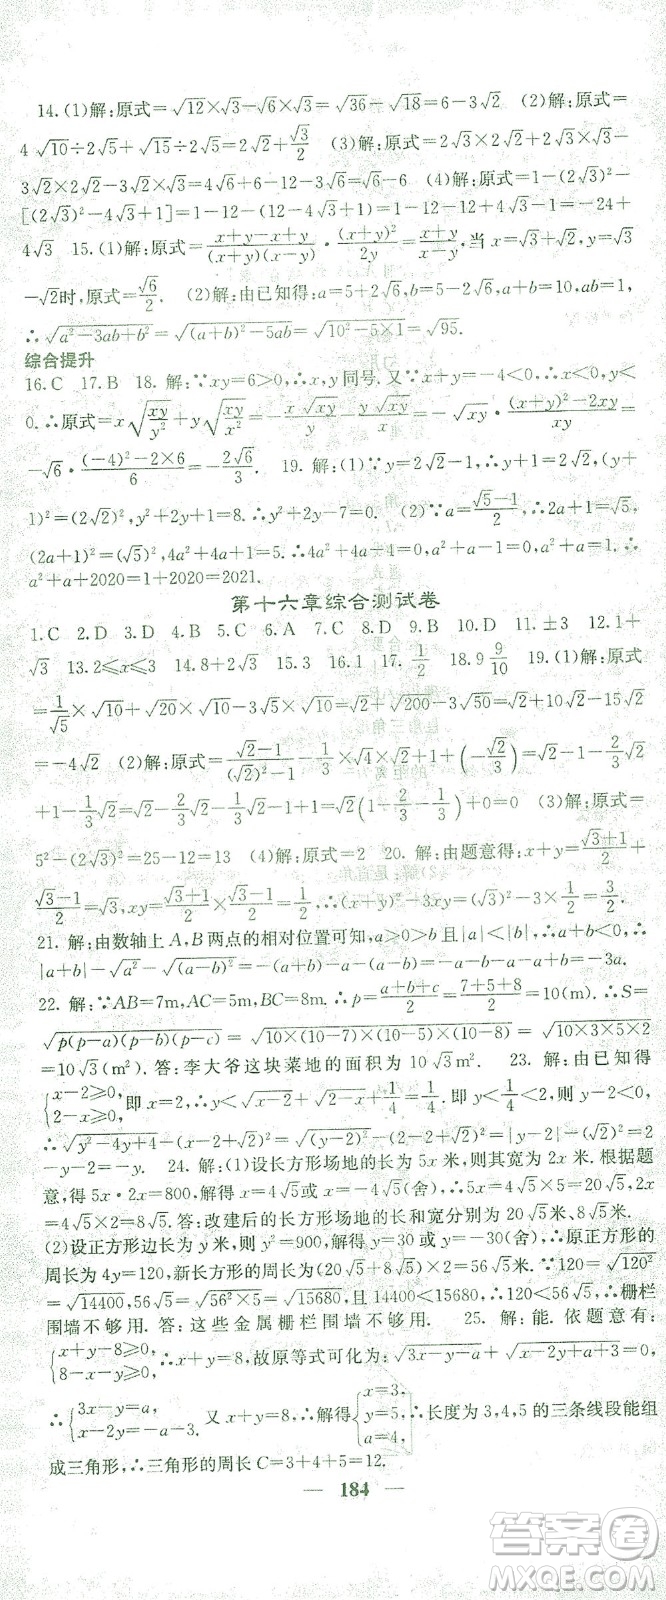 14.(1)解:原式=√12×√3-√6×√3=√36-√18=6-3√2 (2)解:原式=
4√10÷2√5+√15÷2√5=2√2+√3/2 (3)解:原式=2√2×2√3+2√3×√3-
3√2×2√2-3√2×√3=4√6+6-12-3√6=√6-6 (4)解:原式=1-(2√3)²-
[(2√3)²-4√3+1]=1-12-(12-4√3+1)=1-12-12+4√3-1=-24+
4√3 15.(1)解:原式=(x+y-x+y)/((x+y)(x-y))·(x+y)²/2y=(x+y)/(x-y),当x=√3+√2,y=√3
-√2时,原式=√6/2. (2)解:由已知得:a=5+2√6,b=5-2√6,a+b=10,ab=1,
∴√(a²-3ab+b²)=√((a+b)²-5ab)=√(10²-5×1)=√95.
综合提升
16.C 17.B 18. 解:∵xy=6>0,∴x,y同号. 又∵x+y=-4<0,∴x<0,y<
0.∴原式=x√(xy/y²)+y√(xy/x²)=-x√xy/y-y√xy/x=-√xy·((x+y)²-2xy)/xy=
-√6·((-4)²-2×6)/6=-2√6/3. 19. 解:(1)∵y=2√2-1,∴y+1=2√2,(y+
1)²=(2√2)²,y²+2y+1=8.∴y²+2y-7=0. (2)∵a=(√5-1)/2,∴2a+1=√5,
(2a+1)²=(√5)²,4a²+4a+1=5,4a²+4a=4.∴a²+a=1.∴
a²+a+2020=1+2020=2021.
第十六章综合测试卷
1.C 2.D 3.D 4.B 5.C 6.A 7.C 8.D 9.D 10.D 11.±3 12.1+
√3 13.2≤x≤3 14.8+2√3 15.3 16.1 17.1/2 18.9 9/10 19.(1)解:原式
=1/√5×√10+√20×√10-3√5×√10=√2+√200-3√50=√2+10√2-15√2
=-4√2 (2)解:原式=(√2-1)/((√2)²-1)-1/3×√3×√2+1+(-√2/3)=√2-1
+1-1/3√2+1-1/3√2=√2(1-1/3-1/3)+0=1/3√2+1 (3)解:原式=
5²-(2√3)²=25-12=13 (4)解:原式=2 20. 解:由题意得:x+y=(√3+1)/2+
(√3-1)/2=√3,xy=(√3+1)/2×(√3-1)/2=1/2,∴(x+y)²+xy=(√3)²+3×1/2=3/2.
21. 解:由数轴上A,B两点的相对位置可知,a>0>b且|a|<|b|,∴
|a+b|-√a²-√(a-b)²=-(a+b)-a-(a-b)=-a-b-a-a+b=-3a.
22. 解:∵AB=7m,AC=5m,BC=8m.∴p=(a+b+c)/2=(7+5+8)/2=10.∴S=
√(p(p-a)(p-b)(p-c))=√(10×(10-7)×(10-5)×(10-8))=√(10×3×5×2)
=10√3(m²). 答:李大爷这块菜地的面积为10√3m². 23. 解:由已知得
{x-2≥0, 2-x≥0, 即x=2,∴y<√(x-2)+√(2-x)+1/4=1/4,即y<1/4<2,则y-2<0,
∴√(y²-4y+4)-(x-2+√2)²=√(y-2)²-(2-2+√2)²=|y-2|-(√2)²=2
-y-2=-y. 24. 解:(1)设长方形场地的长为5x米,则其宽为2x米. 根据题
意,得5x·2x=800,解得x=4√5或x=-4√5(舍),∴5x=4√5×5=20√5,
2x=4√5×2=8√5. 答:改建后的长方形场地的长和宽分别为20√5米、8√5米.
(2)设正方形边长为y米,则y²=900,解得y=30或y=-30(舍),∴原正方形的
周长为4y=120,新长方形的周长为(20√5+8√5)×2=56√5.∵120=√120²
=√14400,56√5=√(56²×5)=√15680,且√14400<√15680,∴栅栏
围墙不够用. 答:这些金属栅栏围墙不够用. 25. 解:能. 依题意有:
{x+y-8≥0, 8-x-y≥0, ∴x+y=8,故原等式可化为:√(3x-y-a)+√(x-2y+a+3)=0,
∴{3x-y=a, x-2y=-a-3. 又∵x+y=8,∴解得{x=3, y=5, a=4. ∴长度为3,4,5的三条线段能组
成三角形,∴三角形的周长C=3+4+5=12.
— 184 —
答案卷
MXQE.COM